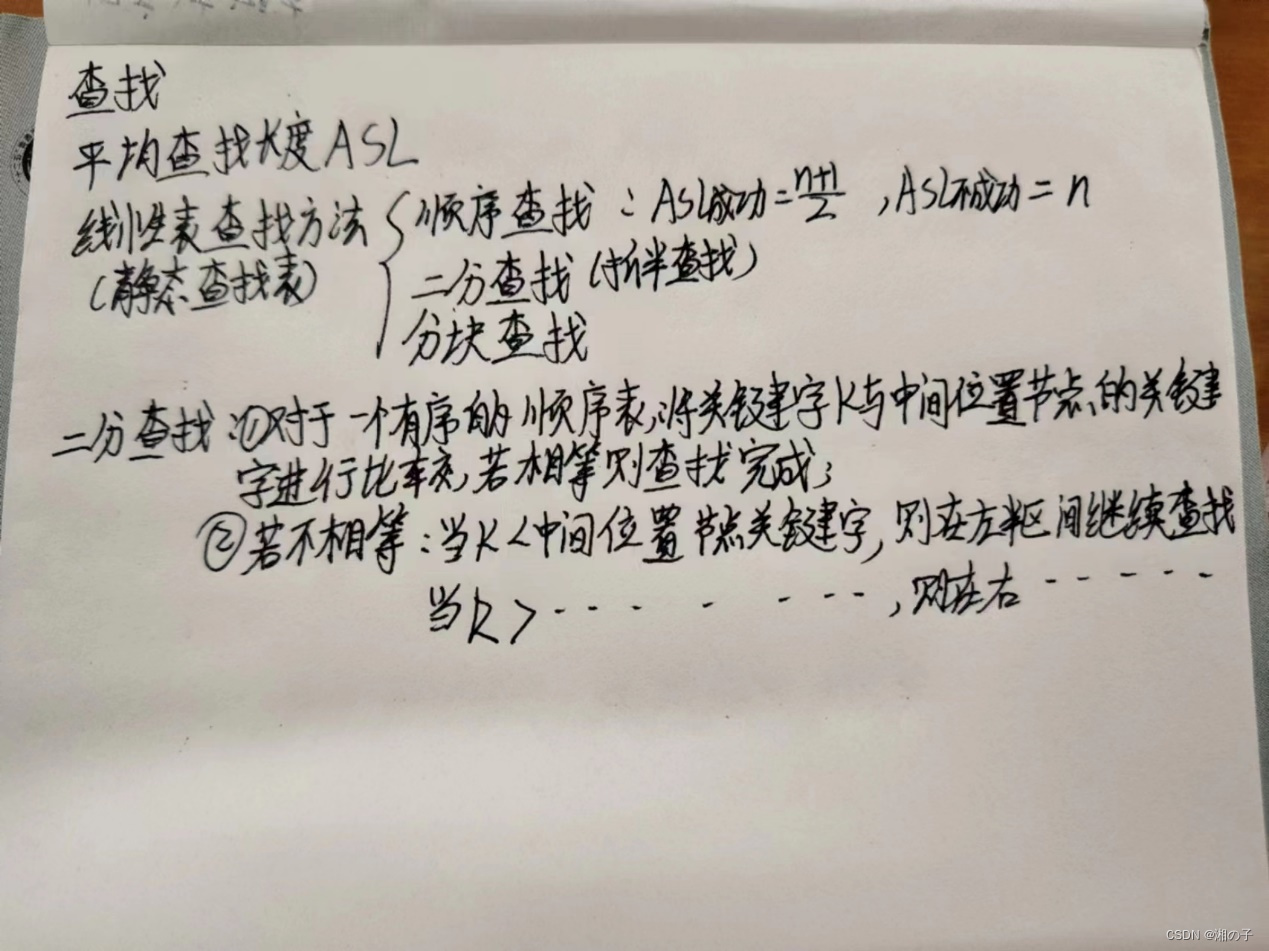 查找
平均查找长度ASL
线性表查找方法 顺序查找:ASL成功=n+1/2 ,ASL不成功=n
(静态查找表) 二分查找(折半查找)
分块查找
二分查找:①对于一个有序的顺序表,将关键字K与中间位置节点的关键
字进行比较,若相等则查找完成;
②若不相等:当K<中间位置节点关键字,则在左半区间继续查找
当K>--- - ---,则在右-----
CSDN @湘の子